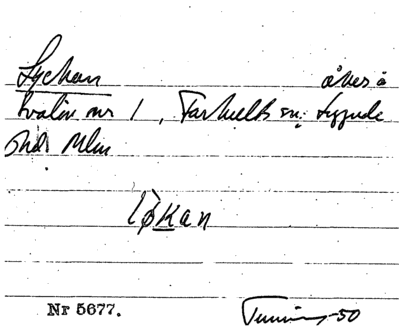 Lyckan åker å
Kvalöv nr 1, Farhults sn; Luggude
hd: Mlm
lø̀Kan
Nr 5677. -50